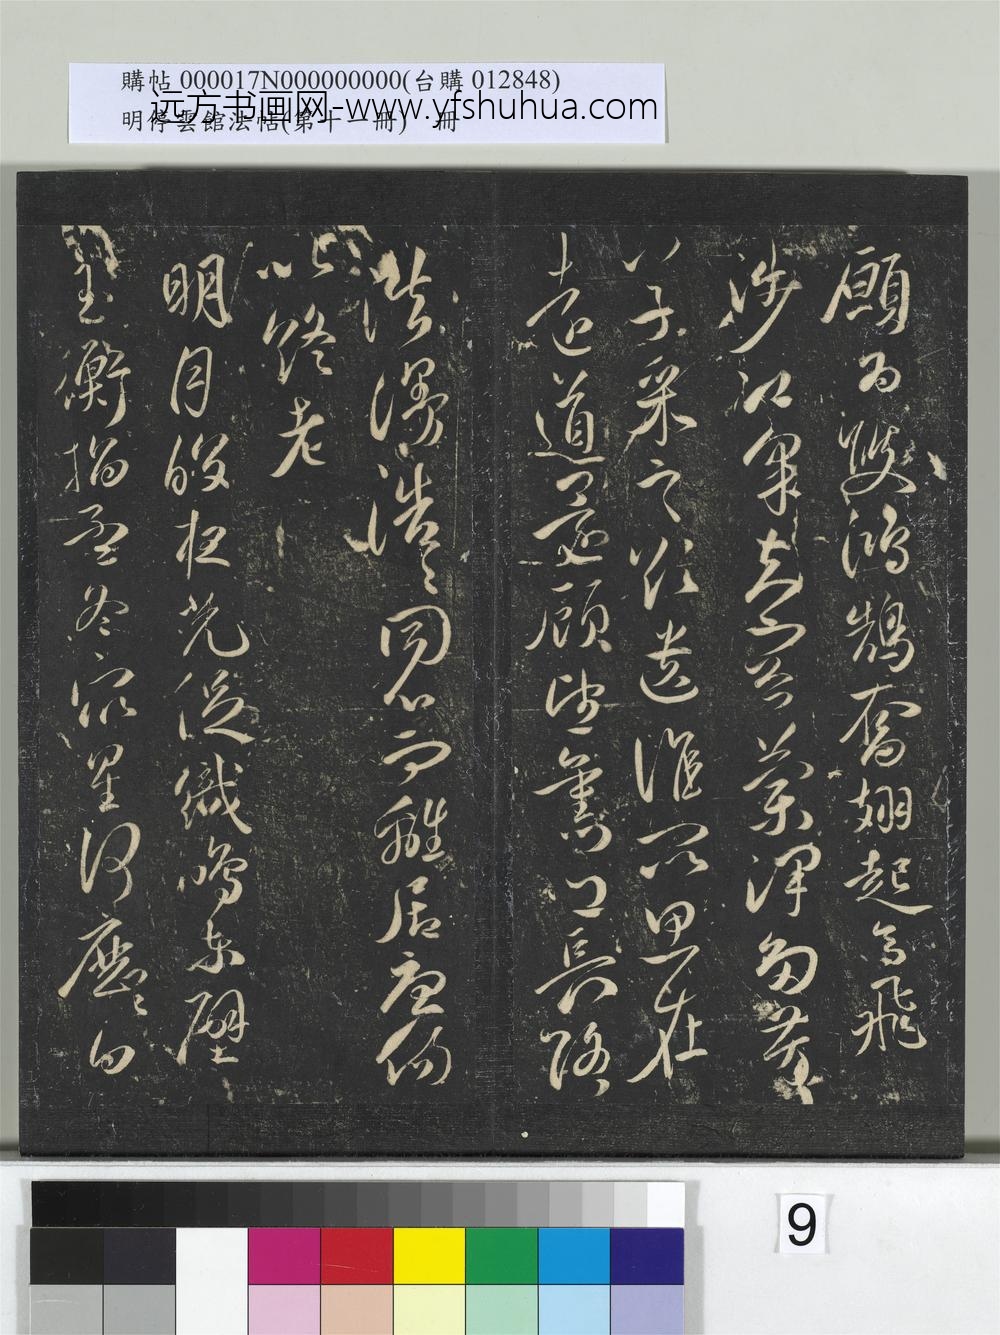 購帖 000017N000000000(台購 012848)
明停雲館法帖(第十一冊) 冊
远方书画网-www.yfshuhua.com
願為雙鴻鵠奮翅起高飛
涉江采芙蓉蘭澤多芳草
以手采之欲遺誰所思在
遠道還顧望舊鄉長路
漫浩浩同心而離居憂傷
以終老
明月皎夜光促織鳴東壁
玉衡指孟冬眾星何歷歷白
9